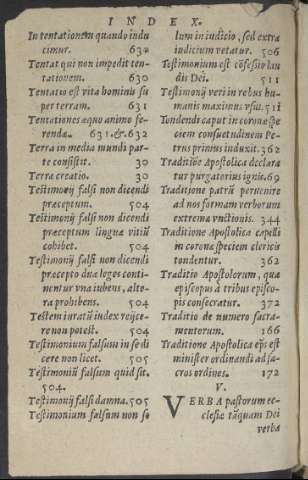 INDEX.
In tentationem quando indu
cimur. 630
Tentat qui non impedit ten-
tationem. 630
Tentatio est vita hominis su
per terram. 631
Tentationes æquo animo fe-
rendæ. 631.&.632
Terra in media mundi par-
te consistit. 30
Terra creatio. 30
Testimonij falsi non dicendi
præceptum. 504
Testimonij falsi non dicendi
præceptum linguæ vitiũ
cohibet. 504
Testimonij falsi non dicendi
præcepto duæ leges conti-
nentur vna iubens, alte-
ra prohibens. 504
Testem iuratũ index reijce-
re non potest. 504
Testimonium falsum in se di
cere non licet. 505
Testimoniũ falsum quid sit.
504.
Testimonij falsi damna. 505
Testimonium falsum non so
lum in iudicio, sed extra
iudicium vetatur. 506
Testimonium est cõfessio lau
dis Dei. 511
Testimonij veri in rebus hu-
manis maximus vsus. 511
Tondendi caput in coronæ spe
ciem consuetudinem Pe-
trus primus induxit. 362
Traditiõe Apostolica declara
tur purgatorius ignis. 69
Traditione patrũ peruenire
ad nos formam verborum
extremæ vnctionis. 344
Traditione Apostolica capelli
in coronæ speciem clericis
tondentur. 362
Traditio Apostolorum, qua
episcopus à tribus episco-
pis consecratur. 372
Traditio de numero sacra-
mentorum. 166
Traditione Apostolica ep̃s est
minister ordinandi ad sa-
cros ordines. 172
V.
VERBA pastorum ec-
clesiæ tãquam Dei
verba